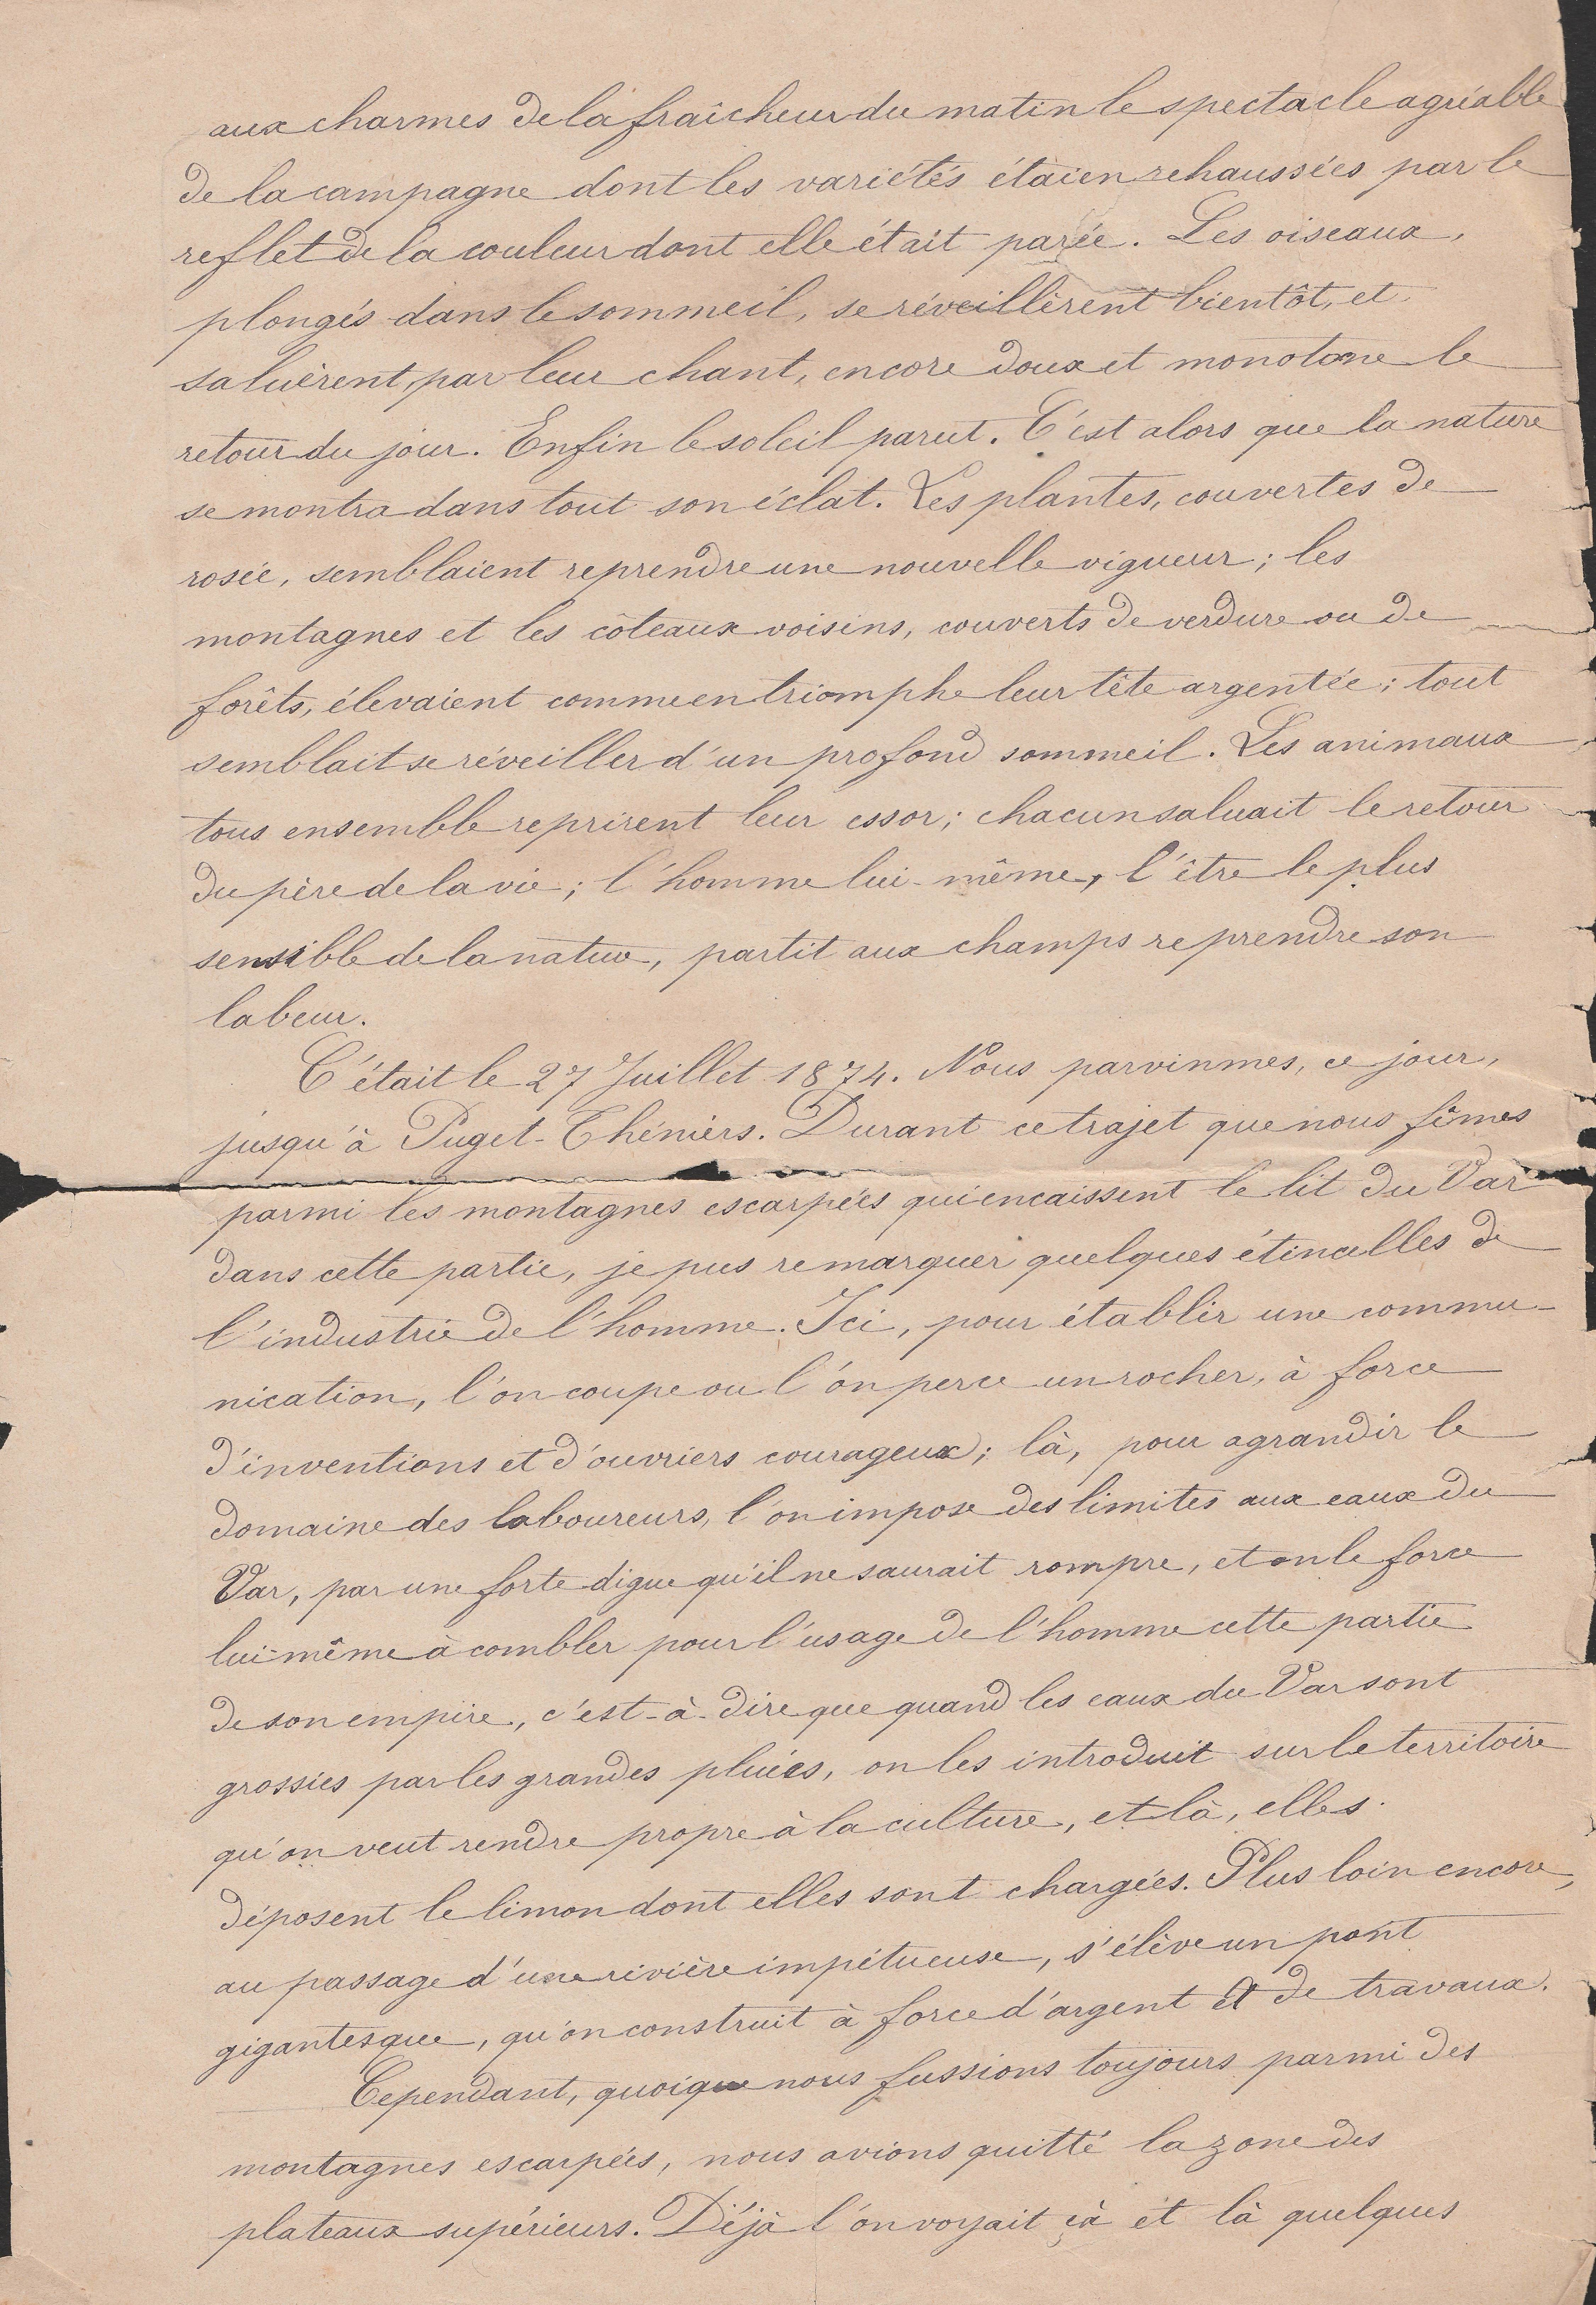 aux charmes de la fraîcheur du matin le spectacle agréable
de la campagne dont les variétés étaien rehaussées par le
reflet de la couleur dont elle était parée. Les oiseaux,
plongés dans le sommeil, se réveillèrent bientôt, et
saluèrent, par leur chant, encore doux et monotone le
retour du jour. Enfin le soleil parut. C'est alors que la nature
se montra dans tout son éclat. Les plantes, couvertes de
rosée, semblaient reprendre une nouvelle vigueur; les
montagnes et les côteaux voisins, couverts de verdure ou de
forêts, élevaient comme en triomphe leur tête argentée; tout
semblait se réveiller d'un profond sommeil. Les animaux
tous ensemble reprirent leur essor; chacun saluait le retour
du père de la vie; l'homme lui-même, l'être le plus
sensible de la nature, partit aux champs reprendre son
labeur.
C'était le 27 Juillet 1874. Nous parvinmes, ce jour,
jusqu'à Puget-Théniers. Durant ce trajet que nous fîmes
parmi les montagnes escarpées qui encaissent le lit du Var
dans cette partie, je pus remarquer quelques étincelles de
l'industrie de l'homme. Ici, pour établir une commu-
nication, l'on coupe ou l'on perce un rocher, à force
d'inventions et d'ouvriers courageux; là, pour agrandir le
domaine des laboureurs, l'on impose des limites aux eaux du
Var, par une forte digue qu'il ne saurait rompre, et on le force
lui-même à combler pour l'usage de l'homme cette partie
de son empire, c'est-à-dire que quand les eaux du Var sont
grossies par les grandes pluies, on les introduit sur le territoire
qu'on veut rendre propre à la culture, et là, elles
déposent le limon dont elles sont chargées. Plus loin encore,
au passage d'une rivière impétueuse, s'élève un pont
gigantesque, qu'on construit à force d'argent et de travaux.
Cependant, quoique nous fussions toujours parmi des
montagnes escarpées, nous avions quitté la zone des
plateaux supérieurs. Déjà l'on voyait çà et là quelques